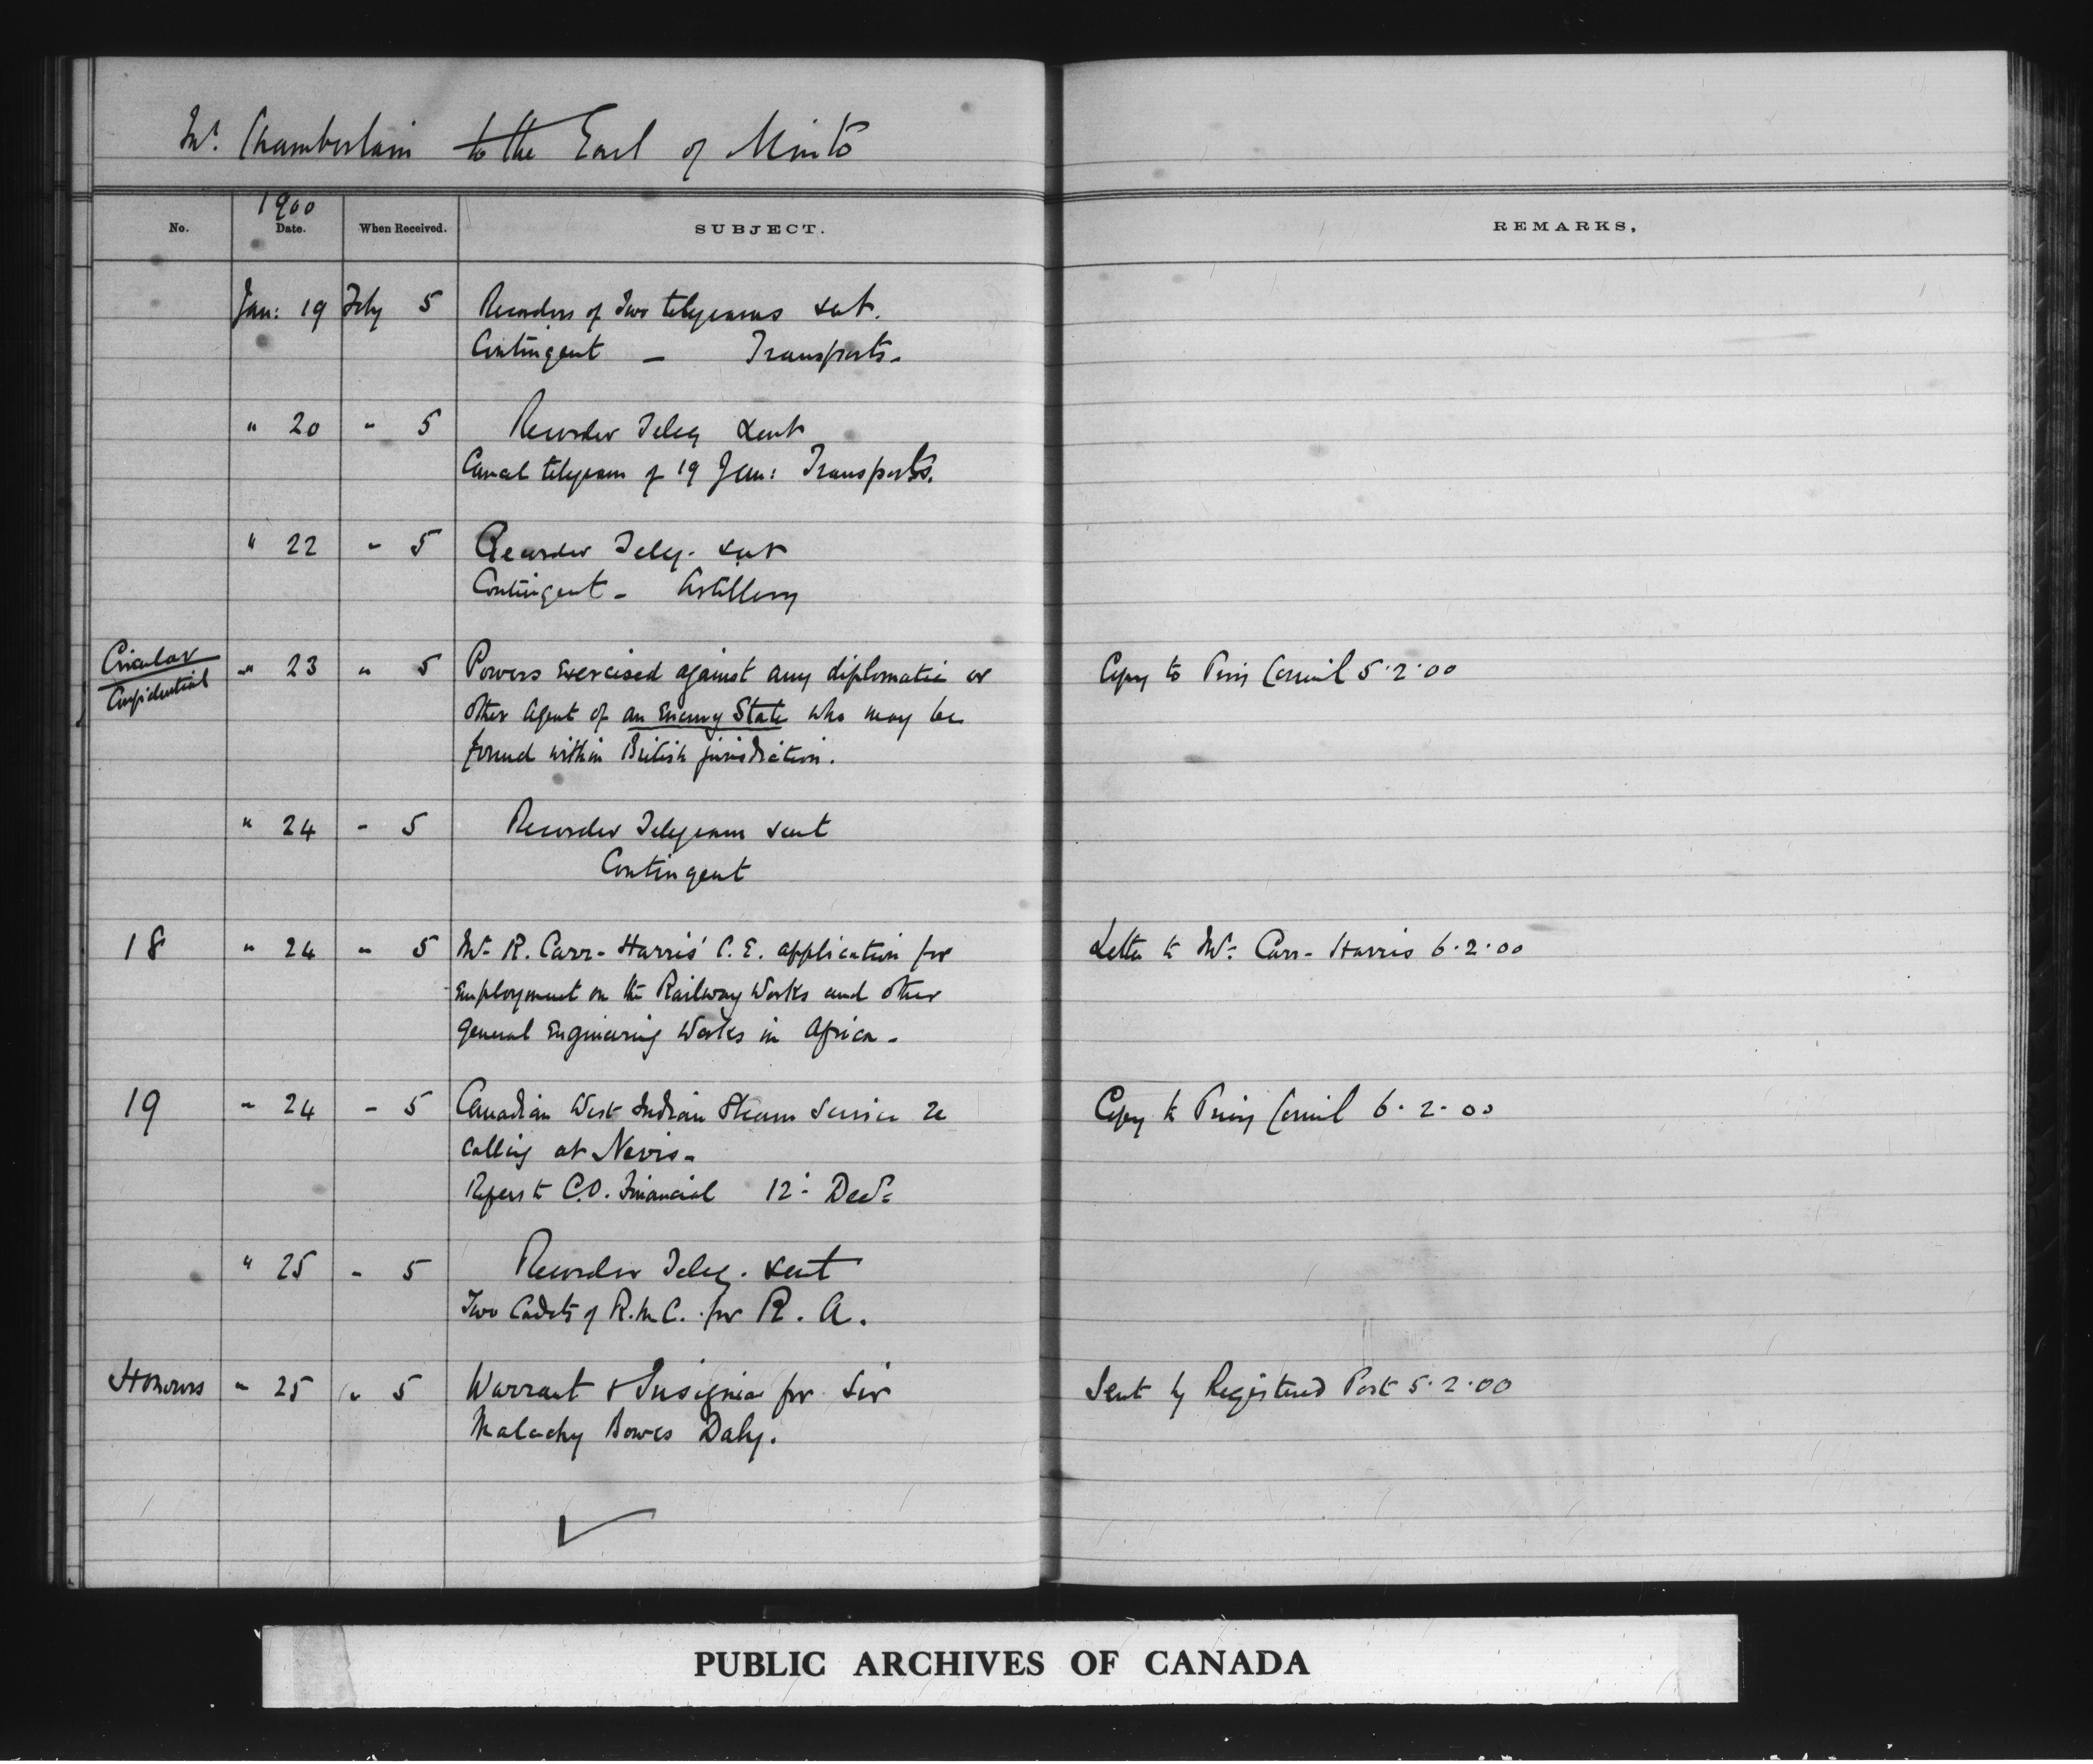 Mr. Chamberlain to the Earl of Minto
1900
No. Date. When Received. SUBJECT. REMARKS.
Jan: 19 Feby 5 Recorders of Two telegrams sent.
Contingent – Transports.
" 20 " 5 Recorder Teleg sent
Cancel telegram of 19 Jan: Transports.
" 22 " 5 Recorder Teleg. sent
Contingent – Artillery
Circular
Confidential
" 23 " 5 Powers exercised against any diplomatic or Copy to Privy Council 5.2.00
other agent of an Enemy State who may be
found within British jurisdiction.
" 24 " 5 Recorder Telegram sent
Contingent
18 " 24 " 5 Mr. R. Carr-Harris' C.E. application for Letter to Mr. Carr-Harris 6.2.00
Employment on the Railway Works and other
general Engineering Works in Africa.
19 " 24 " 5 Canadian West Indian Steam Service re Copy to Privy Council 6.2.00
calling at Nevis.
Refers to C.O. Financial 12: Decr.
" 25 " 5 Recorder Teleg. sent
Two Cadets of R.M.C. for R.A.
Honours " 25 " 5 Warrant & Insignia for Sir Sent by Registered Post 5.2.00
Malachy Bowes Daly.
PUBLIC ARCHIVES OF CANADA